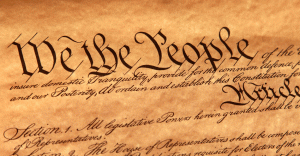 We the People of the
insure domestic Tranquility, provide for the common defence,
and our Posterity, do ordain and establish this Constitution
Article
Section. 1. All legislative Powers herein granted shall be
of Representatives.
The House of Representatives shall be compo
requisite for Electors of the